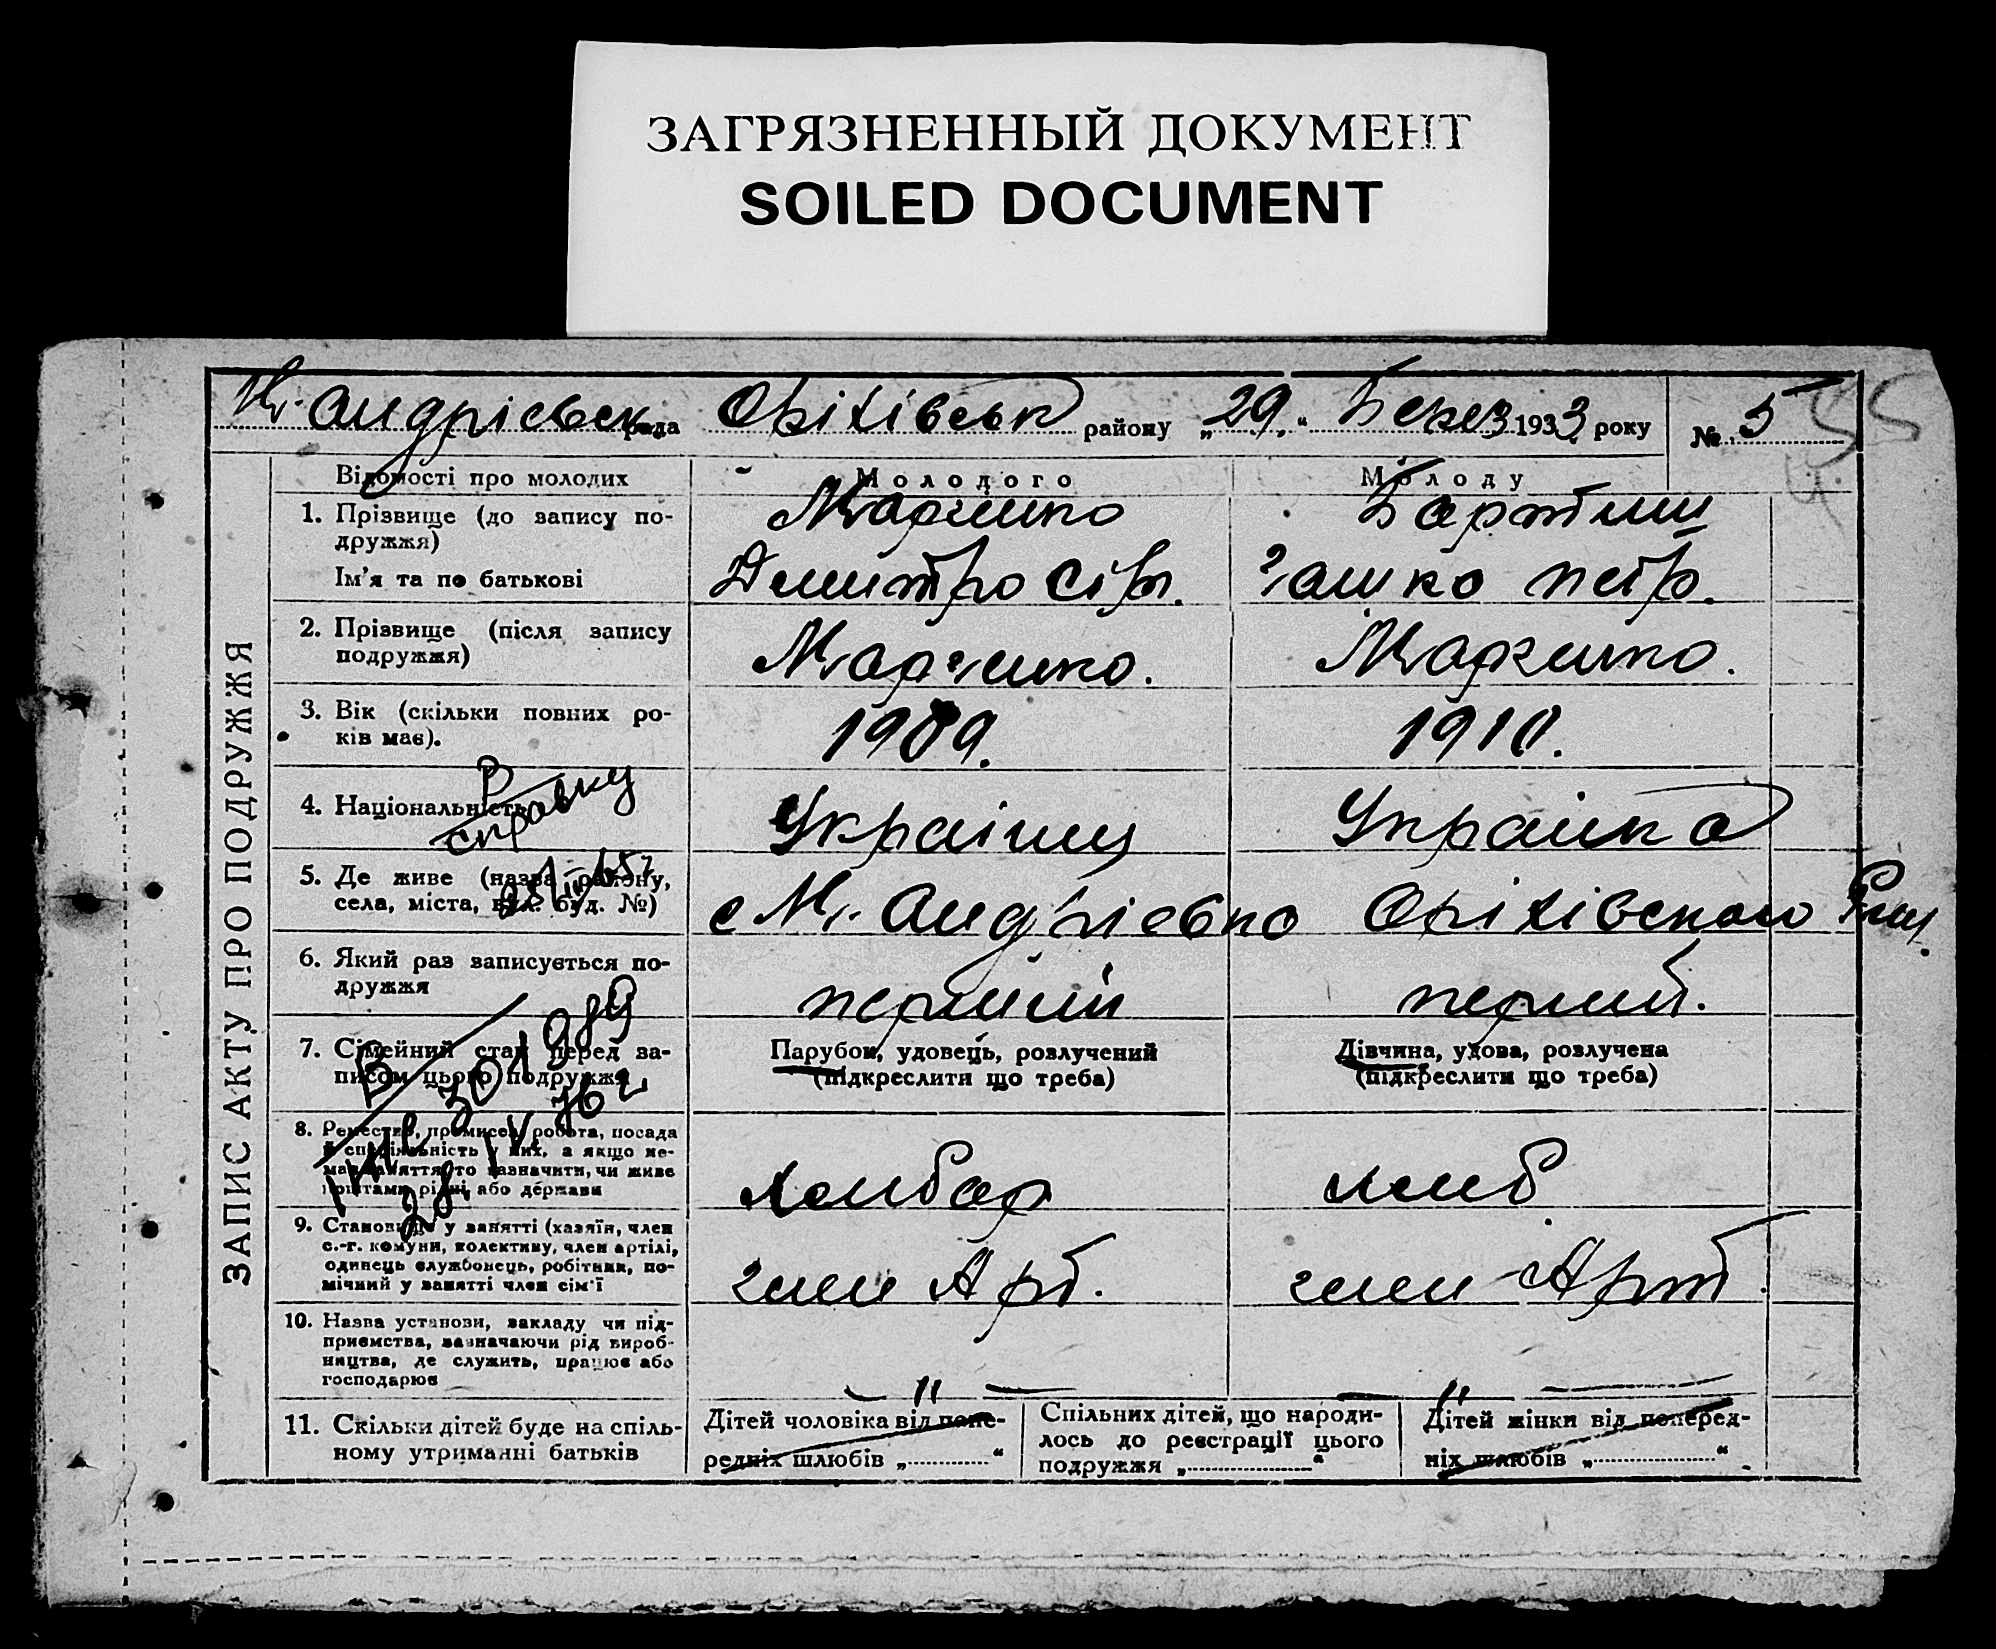 ЗАГРЯЗНЕННЫЙ ДОКУМЕНТ
SOILED DOCUMENT
Андрієвськ. рада Оріхівськ району „29“ Берез 1933 року № 5
ЗАПИС АКТУ ПРО ПОДРУЖЖЯ
Відомості про молодих Молодого Молоду
1. Прізвище (до запису по-
дружжя)
Марченко Бартиш
Ім'я та по батькові
Дмитро петр.
2. Прізвище (після запису
подружжя)
Марченко. Марченко.
3. Вік (скільки повних ро-
ків має).
1909. 1910.
4. Національність Українц Українка
В справку
5. Де живе (назва району,
села, міста, вул. буд. №)
с М. Андрієвка Оріхівского
6. Який раз записується по-
дружжя
перший перший.
7. Сімейний стан перед за-
писом цього подружжя
Парубок, удовець, розлучений
(підкреслити що треба)
Дівчина, удова, розлучена
(підкреслити що треба)
8. Ремество, промисел, робота, посада
й спеціяльність у них, а якщо не-
має заняття, то зазначити, чи живе
коштами рідні, або держави
хлибор хлиб
9. Становище у занятті (хазяїн, член
с.-г. комуни, колективу, член артілі,
одинець службонець, робітник, по-
мічний у занятті член сім'ї
член Арт. член Арт.
10. Назва установи, закладу чи під-
приємства, зазначаючи рід вироб-
ництва, де служить, працює або
господарює
— " — — " —
11. Скільки дітей буде на спіль-
ному утриманні батьків
Дітей чоловіка від попе-
редніх шлюбів „............“
Спільних дітей, що народи-
лось до реєстрації цього
подружжя „............“
Дітей жінки від поперед-
ніх шлюбів „............“